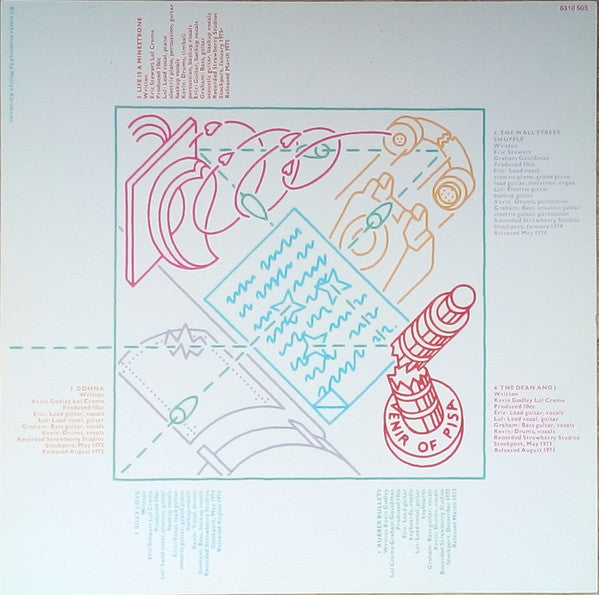 6310 505
All tracks mastered by Melvyn Abrahams
5 LIFE IS A MINESTRONE
Written
Eric Stewart Lol Creme
Produced 10cc
Lol: Lead vocal, piano
electric piano, percussion, guitar
backup vocals
Kevin: Drums,
percussion, backup vocals
Eric: Guitar, backup vocals
Graham: Bass guitar
acoustic guitar, backup vocals
Recorded Strawberry Studios
Stockport, January 1975
Released March 1975
THE WALL STREET
SHUFFLE
Written
Eric Stewart
Graham Gouldman
Produced 10cc
Eric: Lead vocal
electric piano, grand piano
lead guitar, organ
Lol: Electric guitar
backup guitar
Kevin: Drums, percussion
Graham: Bass, acoustic guitar
electric guitar, percussion
Recorded Strawberry Studios
Stockport, January 1974
Released May 1974
1/2
1/2
3/2
ENIR OF PISA
DONNA
Written
Kevin Godley Lol Creme
Produced 10cc
Eric: Lead guitar, vocals
Lol: Lead vocal, guitar
Graham: Bass guitar, vocals
Kevin: Drums, vocals
Recorded Strawberry Studios
Stockport, May 1972
Released August 1972
4 THE DEAN AND I
Written
Kevin Godley Lol Creme
Produced 10cc
Eric: Lead guitar, vocals
Lol: Lead vocal, guitar
Graham: Bass guitar, vocals
Kevin: Drums, vocals
Recorded Strawberry Studios
Stockport, May 1973
Released August 1973
SILLY LOVE
Written
Eric Stewart Lol Creme
Produced 10cc
Lol: Lead vocal, electric guitar
Eric: Vocal, lead guitar
electric guitar, grand piano
Kevin: Vocal, drums
Graham: Bass, vocals
Recorded Strawberry Studios
Stockport, 1974
Released August 1974
RUBBER BULLETS
Written Kevin Godley
Lol Creme Graham Gouldman
Produced 10cc
Eric: Lead guitar
keyboards, vocals
Lol: Lead vocal, guitar
keyboards
Graham: Bass guitar, vocals
Kevin: Drums, vocals
Recorded Strawberry Studios
Stockport, December 1972
Released March 1973